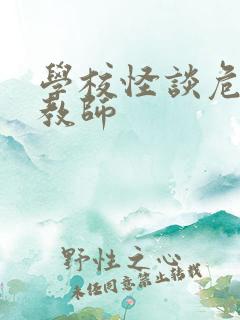 學校怪談危
教師
野性之心
未任同意禁止转载